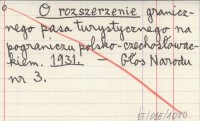 O rozszerzenie granicz-
nego pasa turystycznego na
pograniczu polsko-czechosłowac-
kiem. 1931. — Głos Narodu
nr 3.